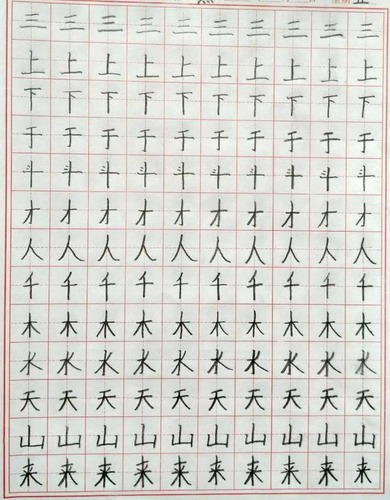 三 三 三 三 三 三 三 三 三 三
上 上 上 上 上 上 上 上 上 上
下 下 下 下 下 下 下 下 下 下
于 于 于 于 于 于 于 于 于 于
斗 斗 斗 斗 斗 斗 斗 斗 斗 斗
才 才 才 才 才 才 才 才 才 才
人 人 人 人 人 人 人 人 人 人
千 千 千 千 千 千 千 千 千 千
木 木 木 木 木 木 木 木 木 木
水 水 水 水 水 水 水 水 水 水
天 天 天 天 天 天 天 天 天 天
山 山 山 山 山 山 山 山 山 山
来 来 来 来 来 来 来 来 来 来